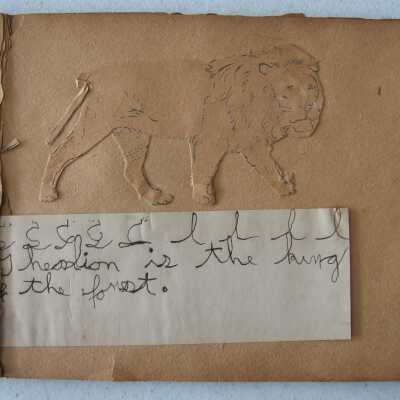 L L L L l l l l
The lion is the king
the forest.